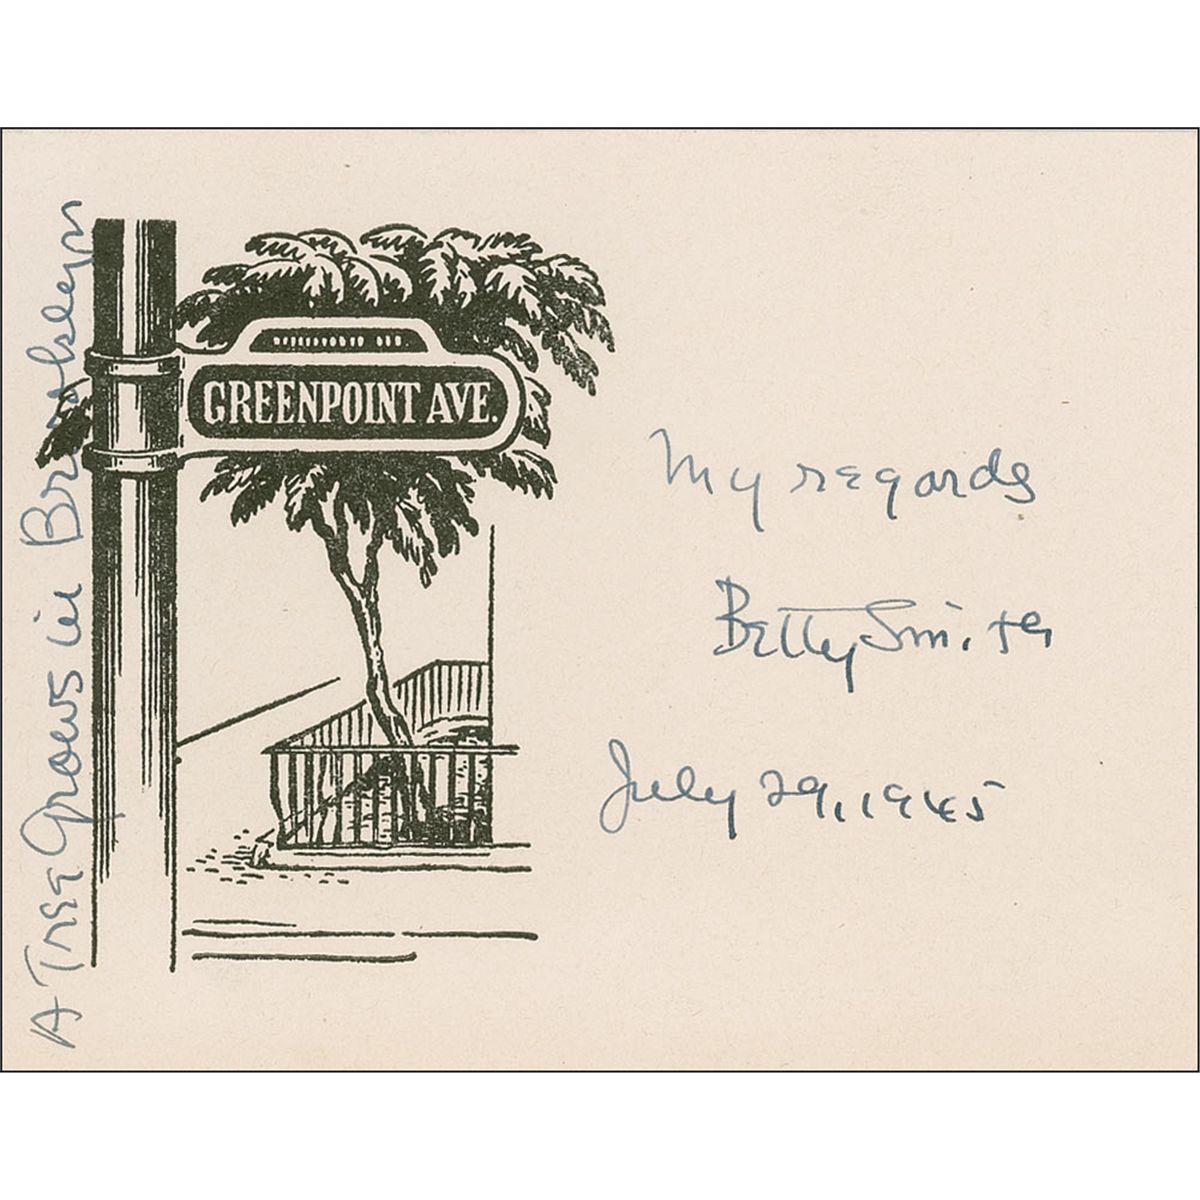 A Tree Grows in Brooklyn
GREENPOINT AVE.
My regards
Betty Smith
July 29, 1945